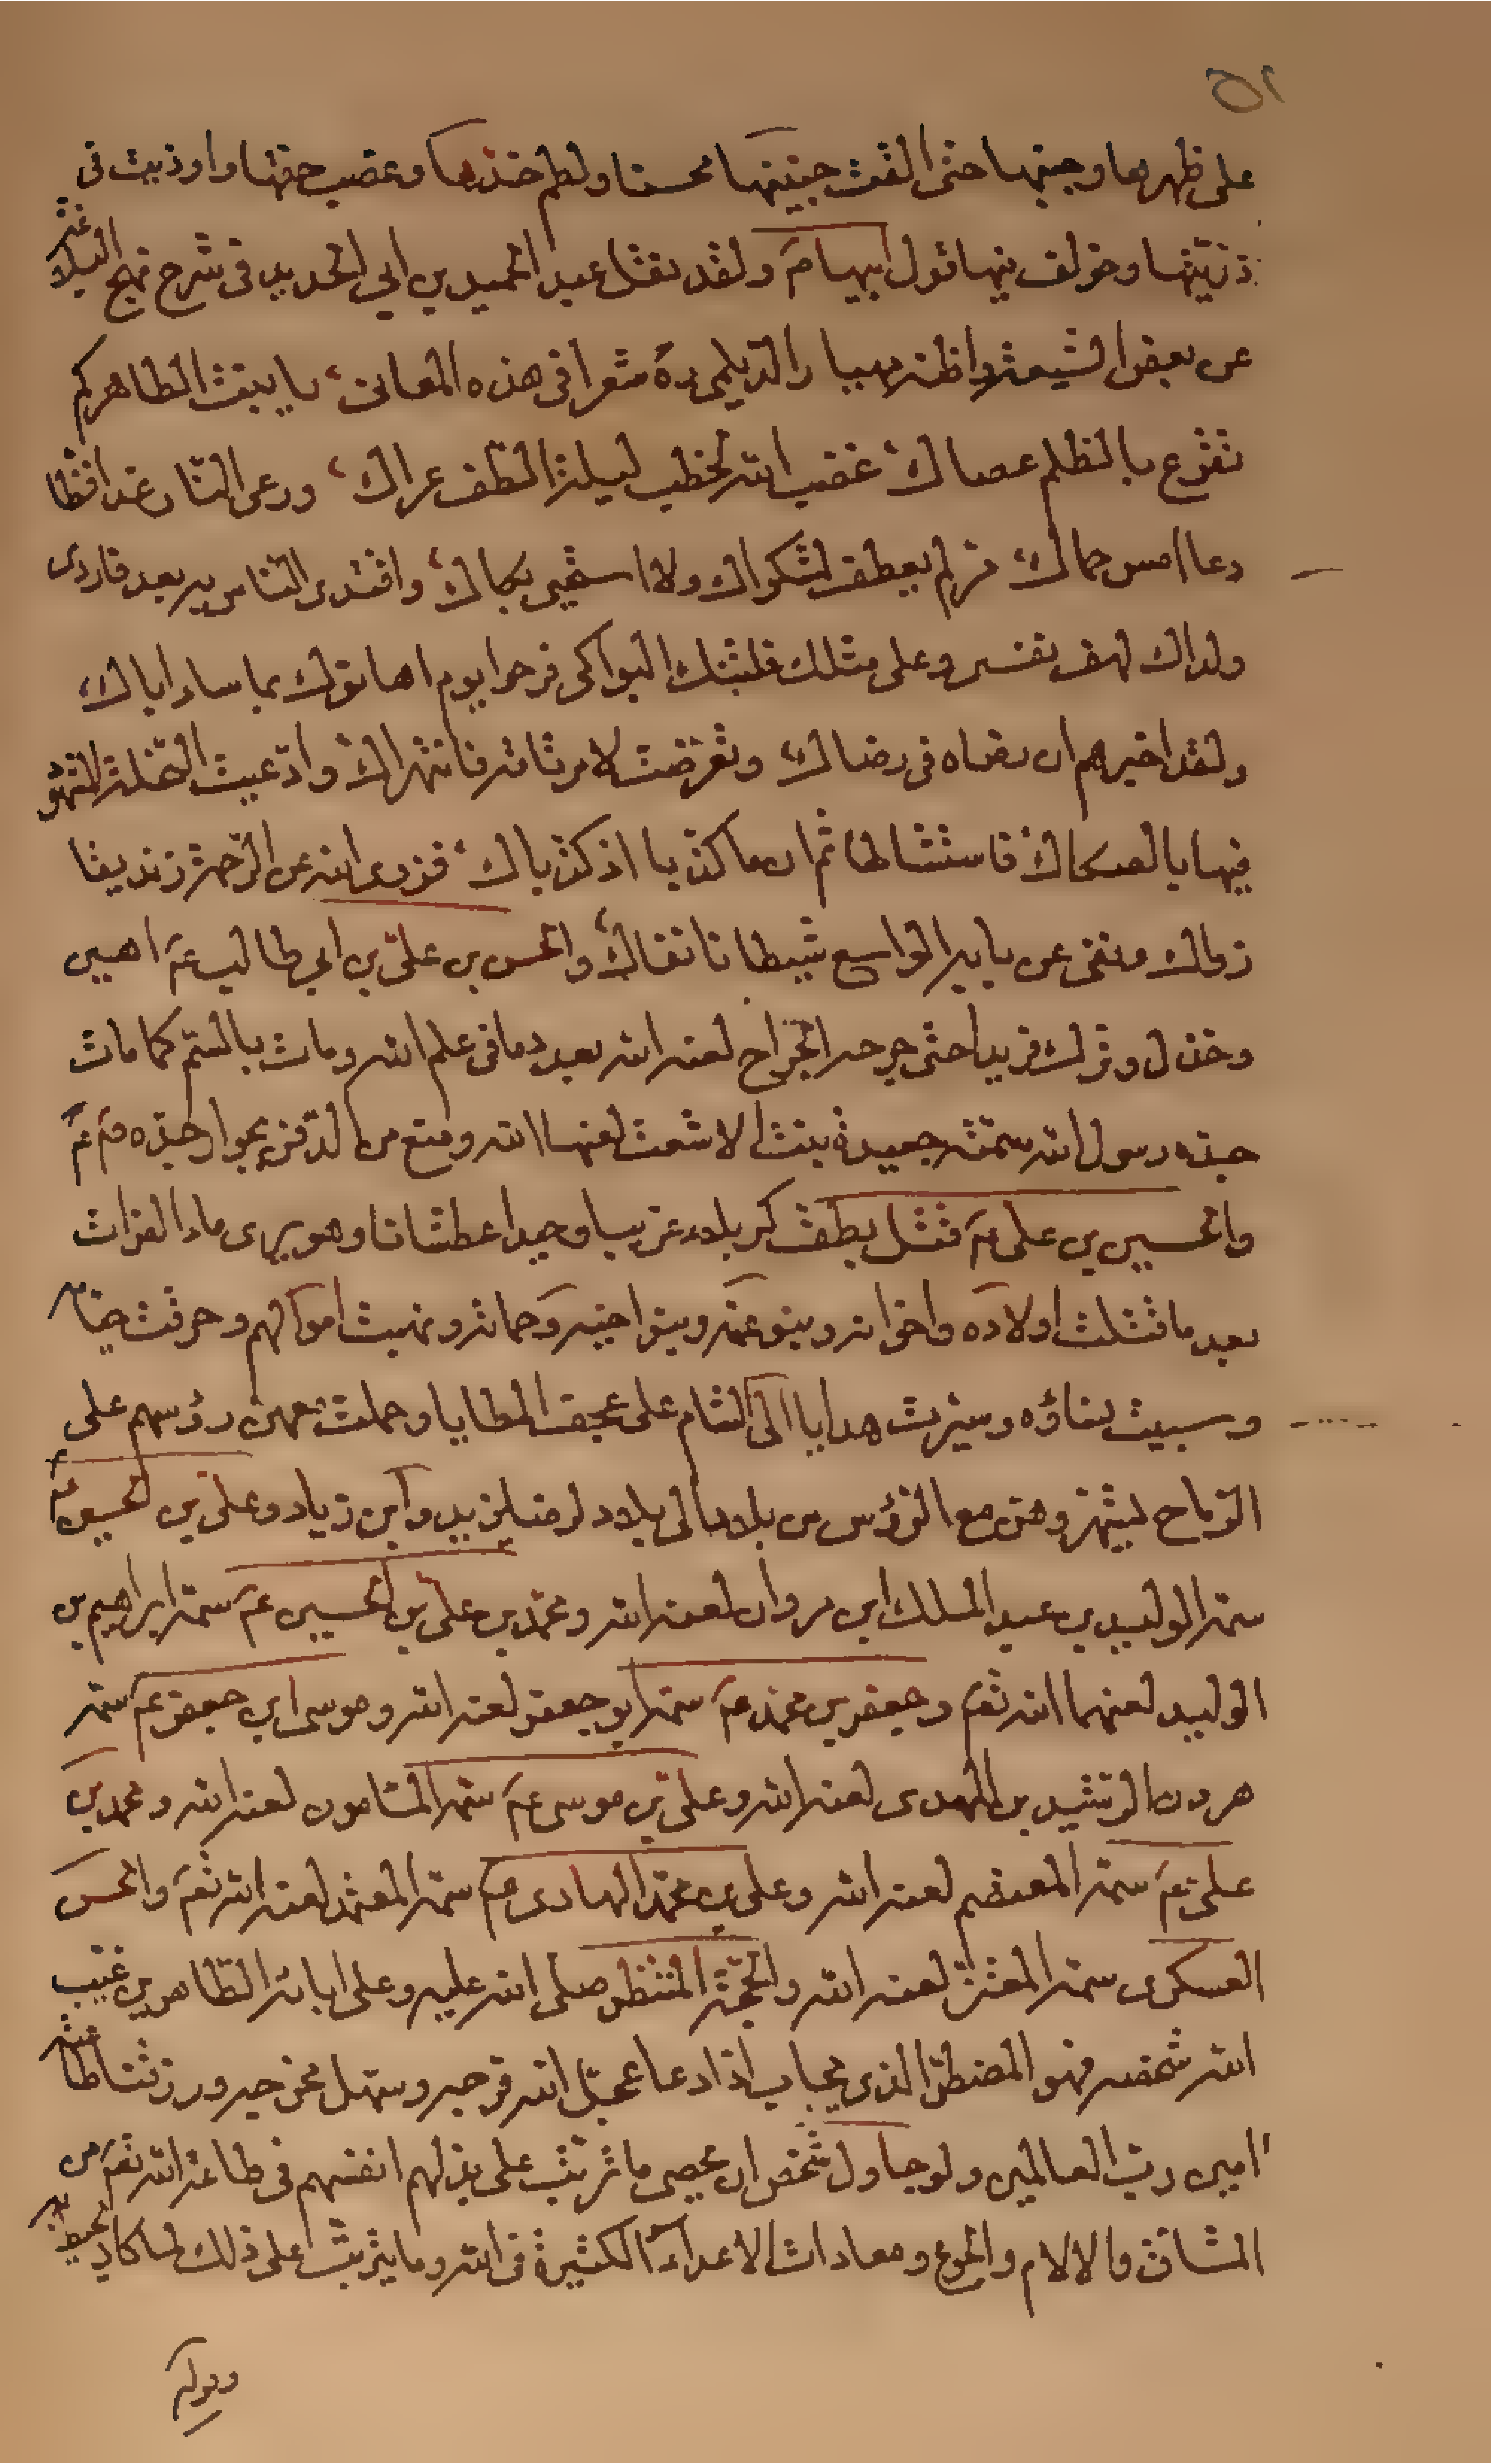 ٥٢
على ظهرها وجنبها حتى القت جنينها محسنا ولطم خدها وغصب حقها واوذيت فى
ذريتها وخولف فيها قول ابيها مَ ولقد نقل عبد الحميد بن ابي الحديد فى شرح نهج البلاغة
عن بعض الشيعة واظنه مهيار الديلمى ره شعرا فى هذه المعانى، يا ابنت الطاهر كم
تقرع بالظلم عصاك، غضب الله لخطب ليلة الطف عراك، ورعى النار غدا قط
رعا امس حماك مر لم يعطف لشكواك ولا استحيى بكاك، واقتدى الناس به بعد فاردى
ولداك لهف نفسى وعلى مثلك فلتبك البواكى فرحوا يوم اهانوك بما ساء اباك،
ولقد اخبرهم ان رضاه فى رضاك وتعرضت لامر تافه فانتهراك وادعيت النحلة المشهود
فيها بالصكاك فاستشاطا ثم ان ما كذبا اذ كذباك، فزوى الله عن الرحمة زنديقا
زواك ونفى عن بابه الواسع شيطانا نفاك، والحسن بن على بن ابي طالب عم اهين
وخذل وترك فريدا حتى جرحه الجراح لعنه الله بعدد ما فى علم الله ومات بالسم كما مات
جده رسول الله سمته جعيدة بنت الاشعث لعنها الله ومنع من الدفن بجوار جده م عم
والحسين بن على عم قتل بطف كربلاء غريبا وحيدا عطشانا وهو يرى ماء الفرات
بعد ما قتلت اولاده واخوانه وبنو عمه وبنو اخيه وحماته ونهبت اموالهم وحرقت خيامه
وسبيت نساؤه وسيرت هدايا الى الشام على عجف المطايا وحملت معهن رؤسهم على
الرماح ليشهروهن مع الرؤس من بلاد الى بلاد لرضا يزيد وابن زياد وعلى بن الحسين عم
سمه الوليد بن عبد الملك ابن مروان لعنه الله ومحمد بن على بن الحسين عم سمه ابراهيم بن
الوليد لعنهما الله تعم وجعفر بن محمد عم سمه ابو جعفر لعنه الله وموسى ابن جعفر عم سمه
هرون الرشيد بن المهدى لعنه الله وعلى بن موسى عم سمه المامون لعنه الله ومحمد بن
على عم سمه المعتصم لعنه الله وعلى بن محمد الهادى عم سمه المعتمد لعنه الله تعم والحسن
العسكرى سمه المعتز لعنه الله والحجة المنتظر صلى الله عليه وعلى ابائه الطاهرين غيب
الله شخصه فهو المضطر الذى يجاب اذا دعا عجل الله فرجه وسهل مخرجه ورزقنا طاعته
امين رب العالمين ولو حاول شخص ان يحصى ما ترتب على بذلهم انفسهم فى طاعة الله تعم من
المشاق والالام والجوع ومعادات الاعداء الكثيرة فى الله وما يترتب على ذلك لما كاد يحيط به